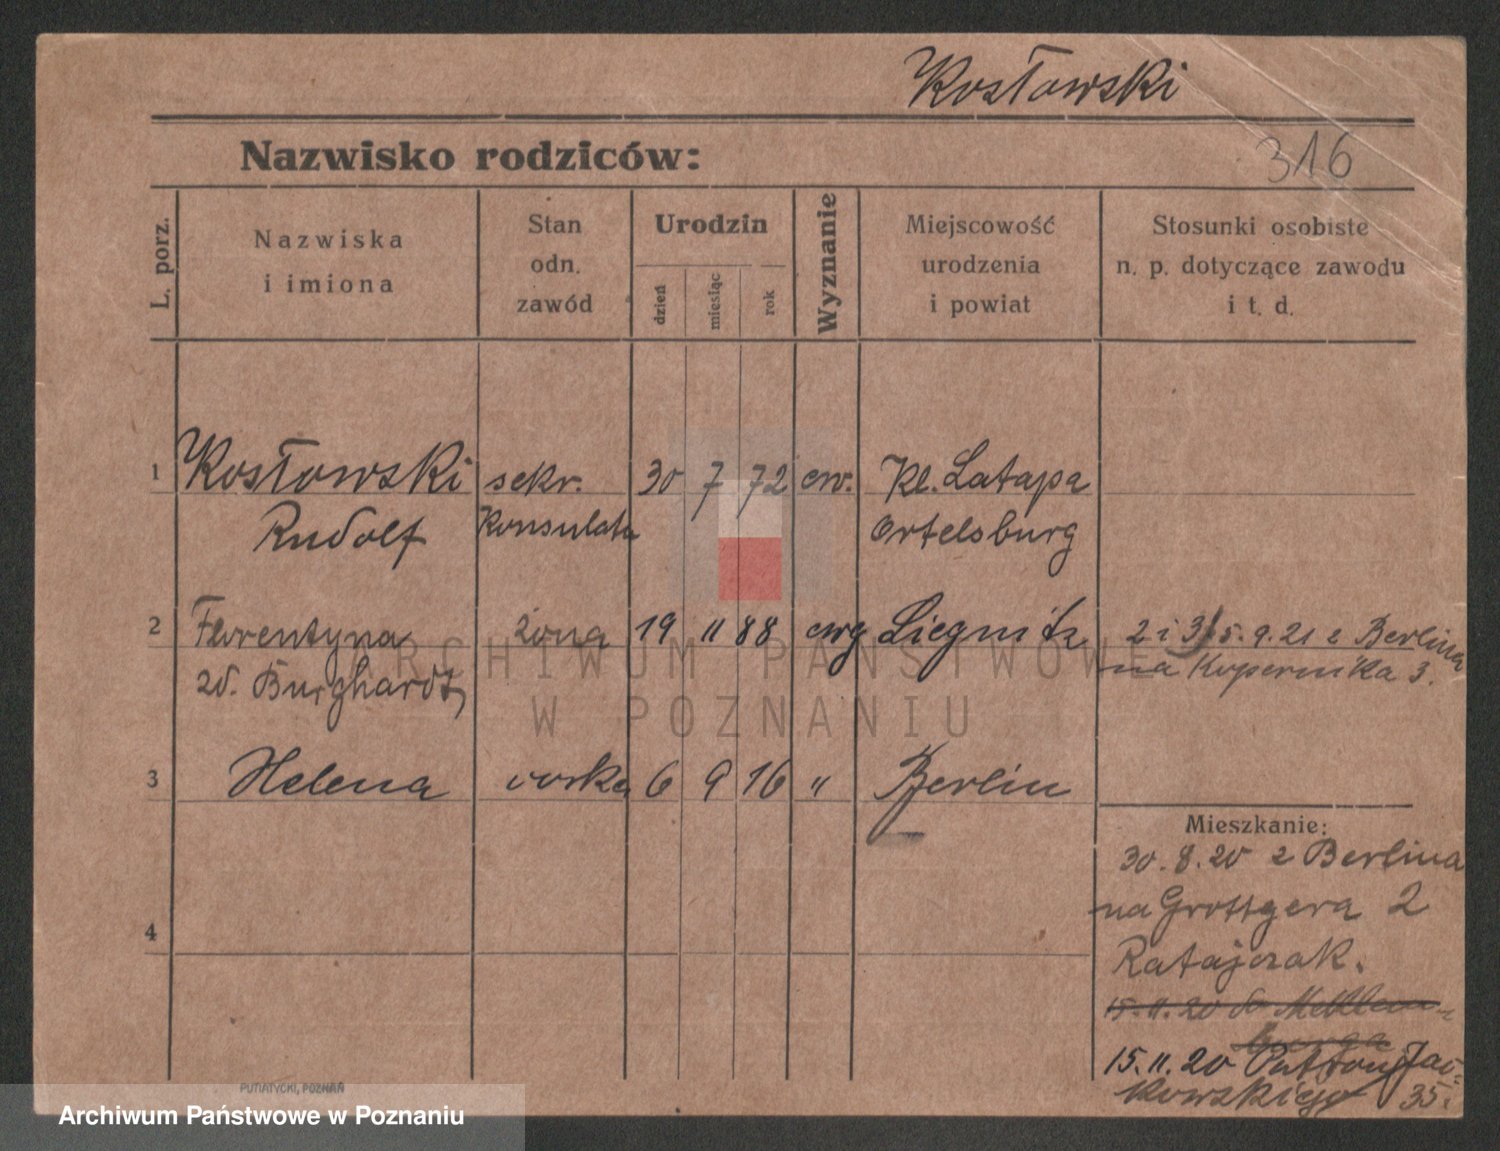 Kosłowski
316
Nazwisko rodziców:
L. porz.
Nazwiska
i imiona
Stan
odn.
zawód
Urodzin
dzień
miesiąc
rok
Wyznanie
Miejscowość
urodzenia
i powiat
Stosunki osobiste
n. p. dotyczące zawodu
i t. d.
1 Kosłowski sekr. 30 7 72 ew. Kl. Latapa
Rudolf Konsulata Ortelsburg
2 Florentyna żona 19 11 88 ewg Liegnitz 2 i 3/5.9.21 z Berlina
zd. Burghardt na Kopernika 3.
3 Helena corka 6 9 16 " Berlin
Mieszkanie:
30.8.20 z Berlina
na Grottgera 2
Ratajczak.
15.11.20 do Meklem-
burga
15.11.20 Jac-
kowskiego 35.
4
PUTIATYCKI, POZNAŃ
ARCHIWUM PAŃSTWOWE
W POZNANIU
Archiwum Państwowe w Poznaniu